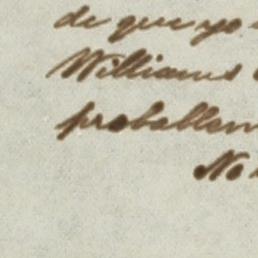 de que yo
Williams
proballem
No